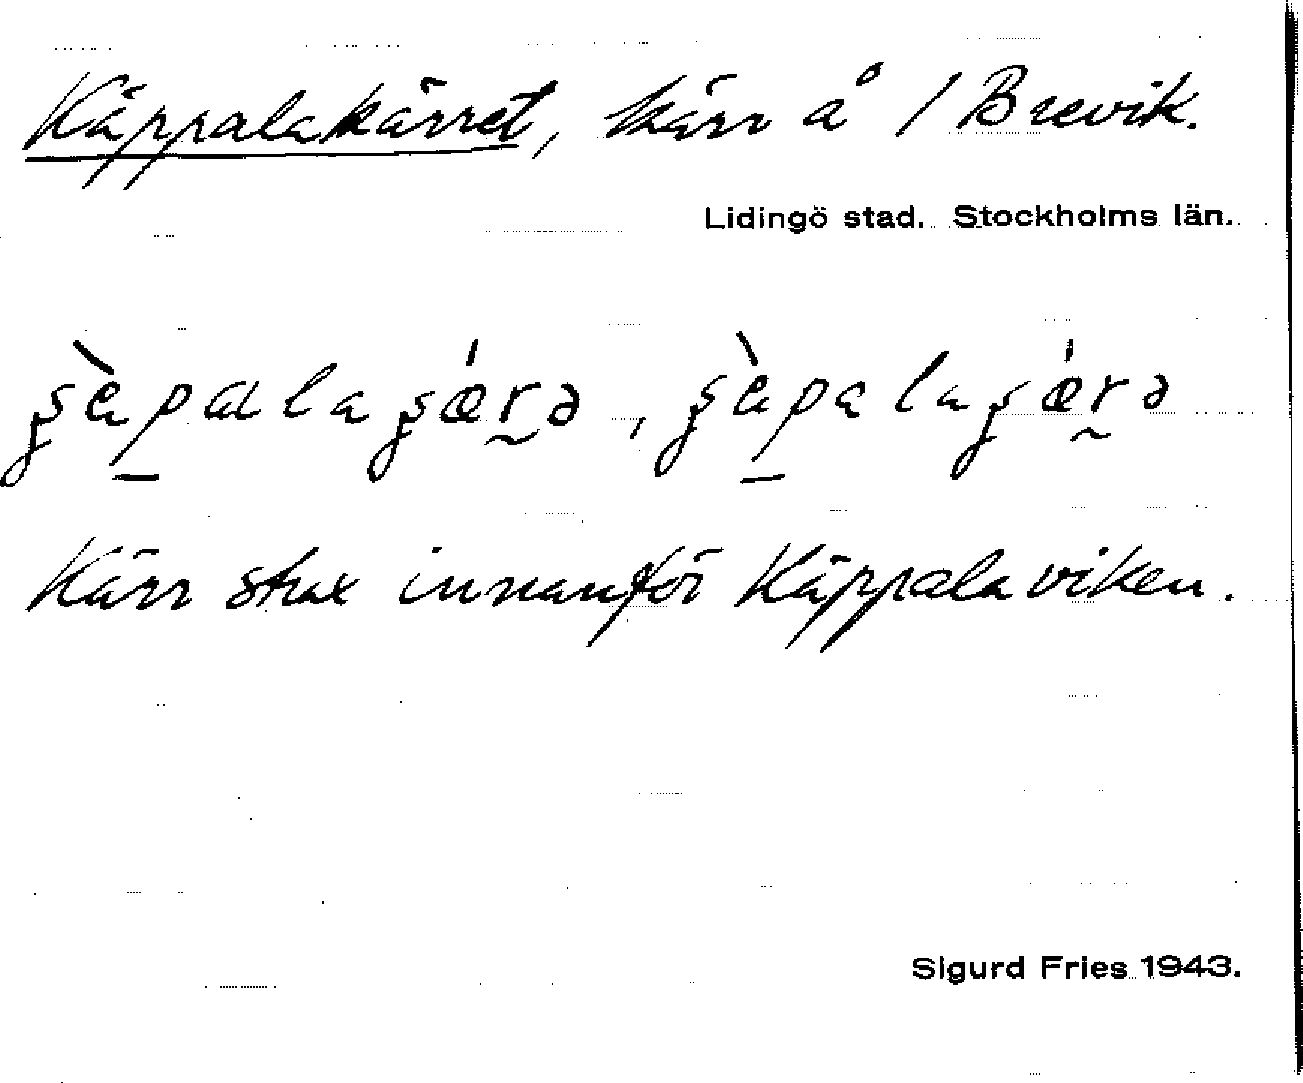 Käppalakärret, kärr å 1 Brevik.
Lidingö stad. Stockholms län.
Kärr strax innanför Käppalaviken.
Sigurd Fries 1943.